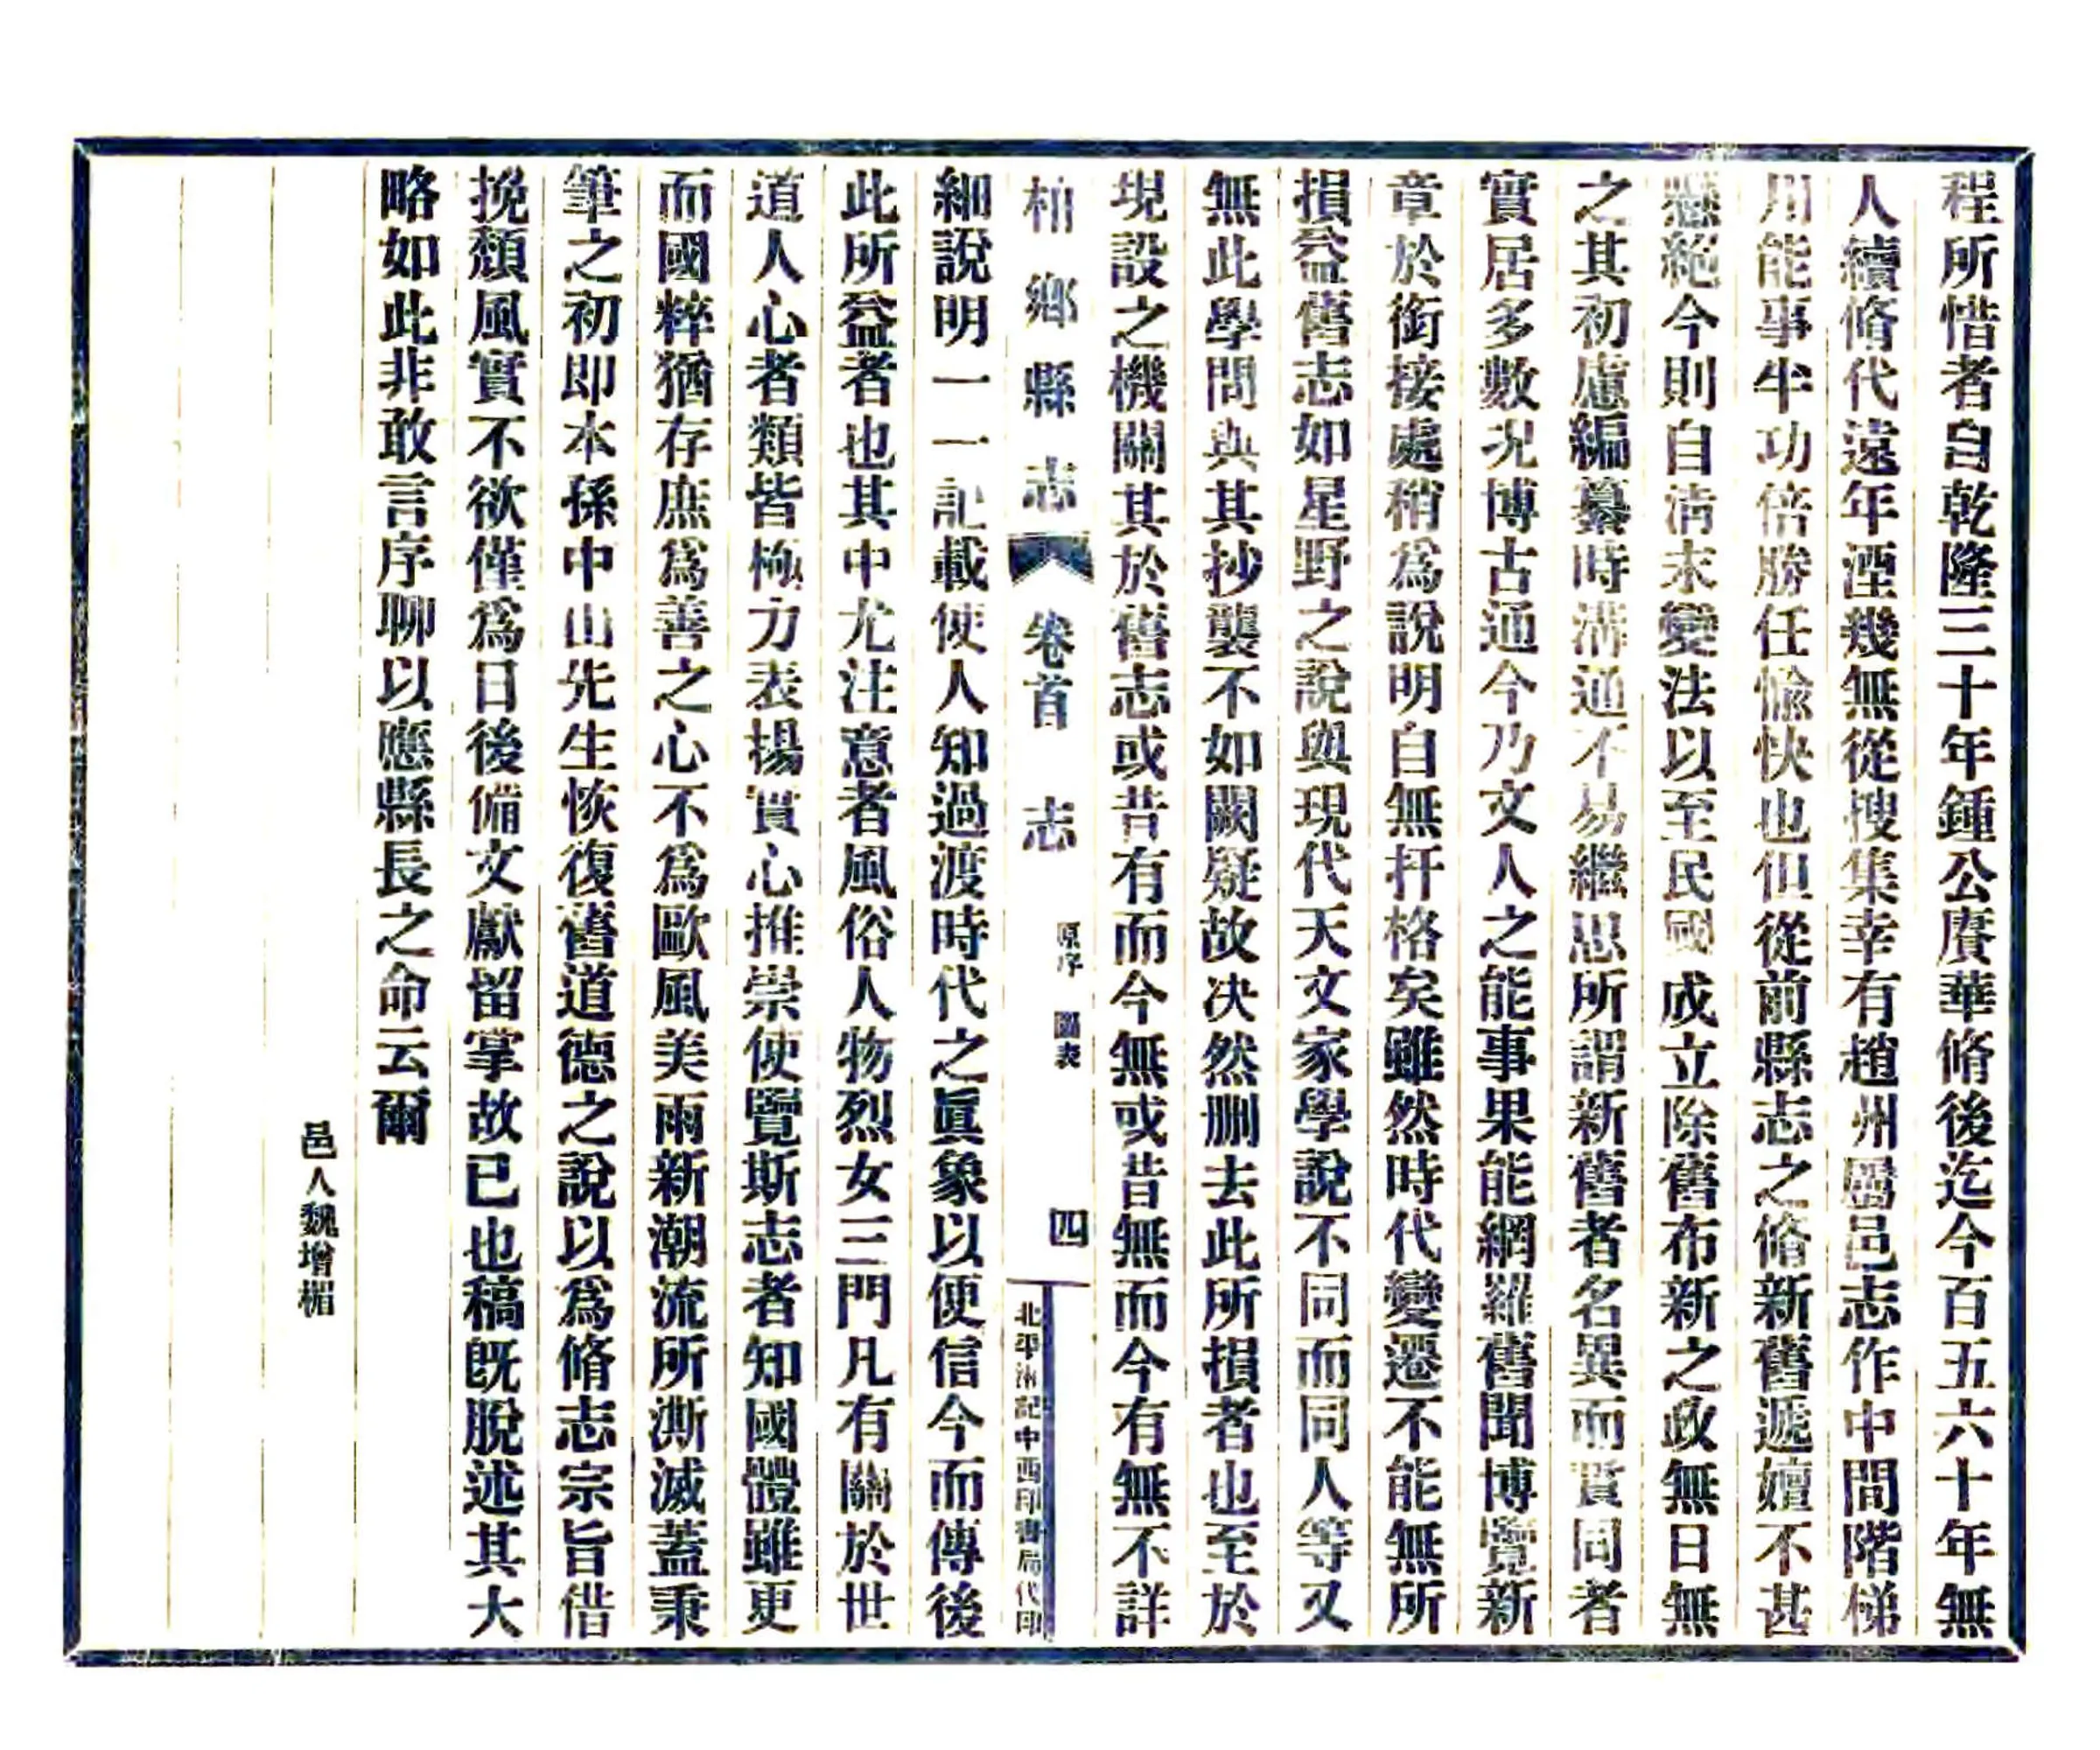 程所惜者自乾隆三十年鍾公賡華脩後迄今百五六十年無
人續脩代遠年湮幾無從搜集幸有趙州屬邑志作中間階梯
用能事半功倍勝任愉快也但從前縣志之脩新舊遞嬗不甚
懸絕今則自淸末變法以至民國成立除舊布新之政無日無
之其初慮編纂時溝通不易繼思所謂新舊者名異而實同者
實居多數况博古通今乃文人之能事果能網羅舊聞博覽新
章於銜接處稍爲說明自無扞格矣雖然時代變遷不能無所
損益舊志如星野之說與現代天文家學說不同而同人等又
無此學問與其抄襲不如闕疑故决然删去此所損者也至於
現設之機關其於舊志或昔有而今無或昔無而今有無不詳
柏鄉縣志 卷首 志 原序 圖表 四 北平 記中西印書局代印
細說明一一記載使人知過渡時代之眞象以便信今而傳後
此所益者也其中尤注意者風俗人物烈女三門凡有關於世
道人心者類皆極力表揚實心推崇使覽斯志者知國體雖更
而國粹猶存庶爲善之心不爲歐風美雨新潮流所澌滅蓋秉
筆之初即本孫中山先生恢復舊道德之說以爲脩志宗旨借
挽頹風實不欲僅爲日後備文獻留掌故已也稿旣脫述其大
略如此非敢言序聊以應縣長之命云爾
邑人魏增楣